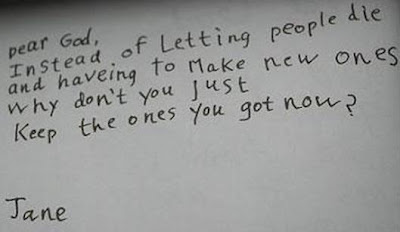 Dear God,
Instead of Letting people die
and haveing to Make new ones
why don't you just
Keep the ones you got now?
Jane